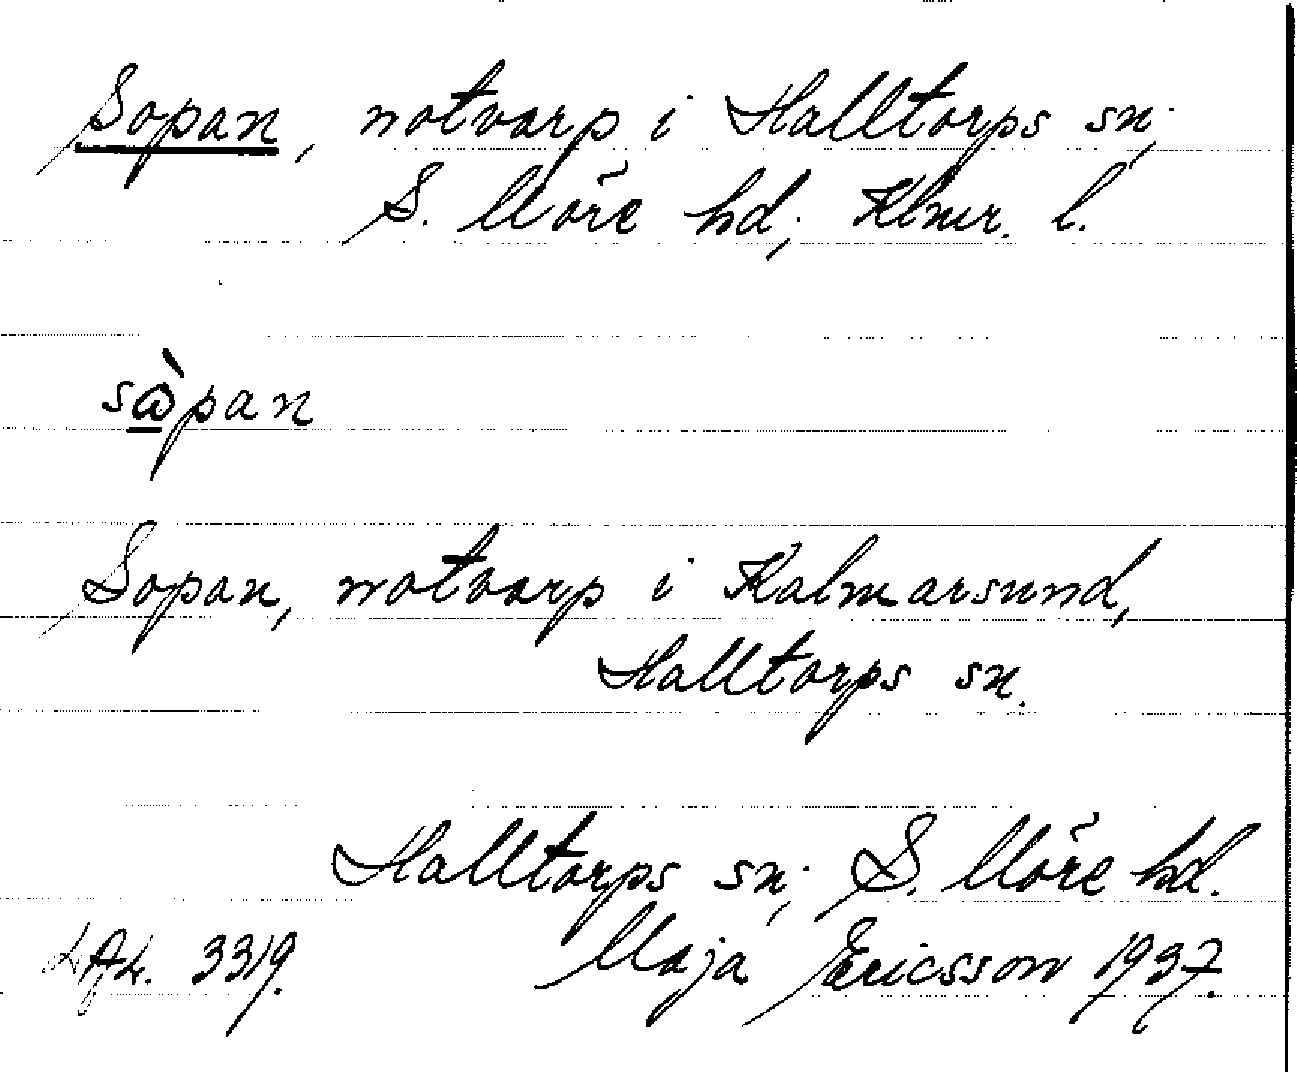 Sopan, notvarp i Halltorps sn.,
S. Möre hd., Klmr. l.
sɷ̀pan
Sopan, notvarp i Kalmarsund,
Halltorps sn.
Halltorps sn., S. Möre hd.
3319. Maja Ericsson 1937.